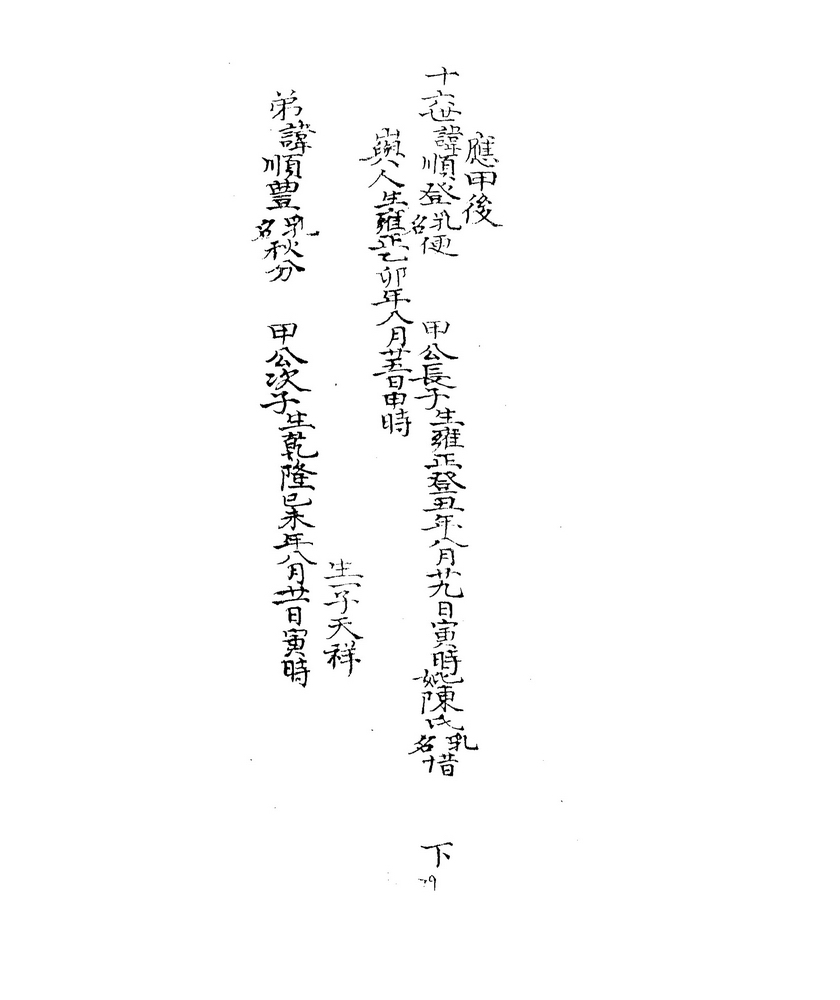 應甲後
十六世諱順登乳名便 甲公長子生雍正登丑年八月廿九日寅時妣陳氏乳名十昔 下
嶼人生雍正乙卯年八月廿五日申時
生一子天祥
弟諱順豊乳名秋分 甲公次子生乾隆己未年八月廿一日寅時